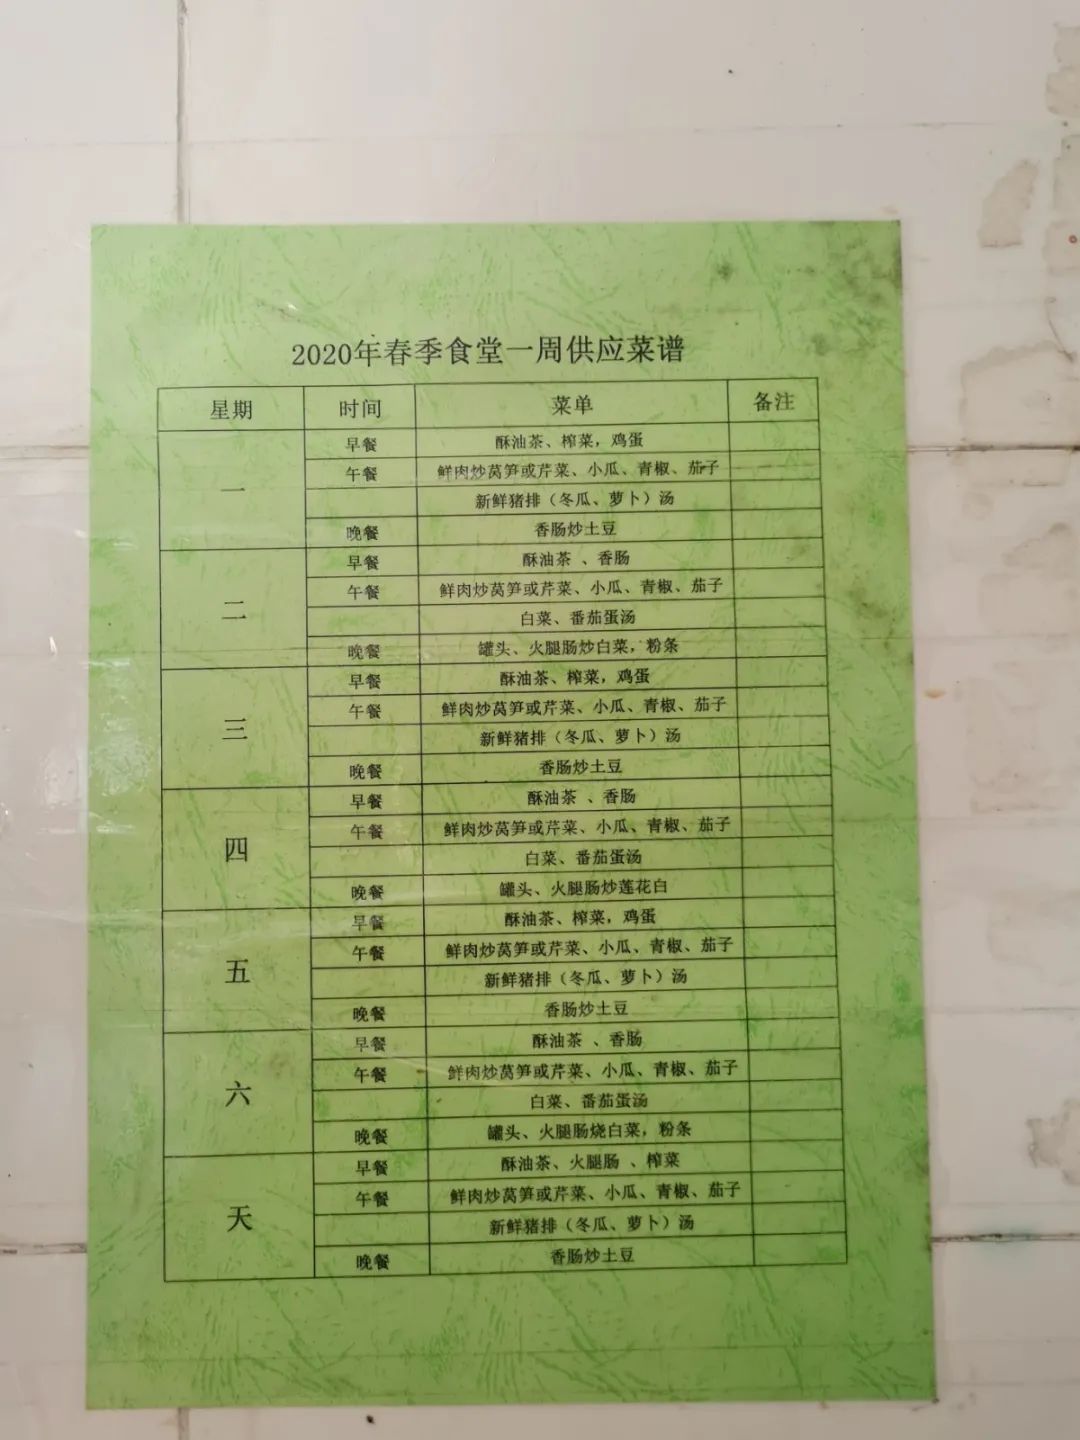 2020年春季食堂一周供应菜谱
星期 时间 菜单 备注
一 早餐 酥油茶、榨菜，鸡蛋
午餐 鲜肉炒莴笋或芹菜、小瓜、青椒、茄子
新鲜猪排（冬瓜、萝卜）汤
晚餐 香肠炒土豆
二 早餐 酥油茶 、香肠
午餐 鲜肉炒莴笋或芹菜、小瓜、青椒、茄子
白菜、番茄蛋汤
晚餐 罐头、火腿肠炒白菜，粉条
三 早餐 酥油茶、榨菜，鸡蛋
午餐 鲜肉炒莴笋或芹菜、小瓜、青椒、茄子
新鲜猪排（冬瓜、萝卜）汤
晚餐 香肠炒土豆
四 早餐 酥油茶 、香肠
午餐 鲜肉炒莴笋或芹菜、小瓜、青椒、茄子
白菜、番茄蛋汤
晚餐 罐头、火腿肠炒莲花白
五 早餐 酥油茶、榨菜，鸡蛋
午餐 鲜肉炒莴笋或芹菜、小瓜、青椒、茄子
新鲜猪排（冬瓜、萝卜）汤
晚餐 香肠炒土豆
六 早餐 酥油茶 、香肠
午餐 鲜肉炒莴笋或芹菜、小瓜、青椒、茄子
白菜、番茄蛋汤
晚餐 罐头、火腿肠烧白菜，粉条
天 早餐 酥油茶、火腿肠 、榨菜
午餐 鲜肉炒莴笋或芹菜、小瓜、青椒、茄子
新鲜猪排（冬瓜、萝卜）汤
晚餐 香肠炒土豆